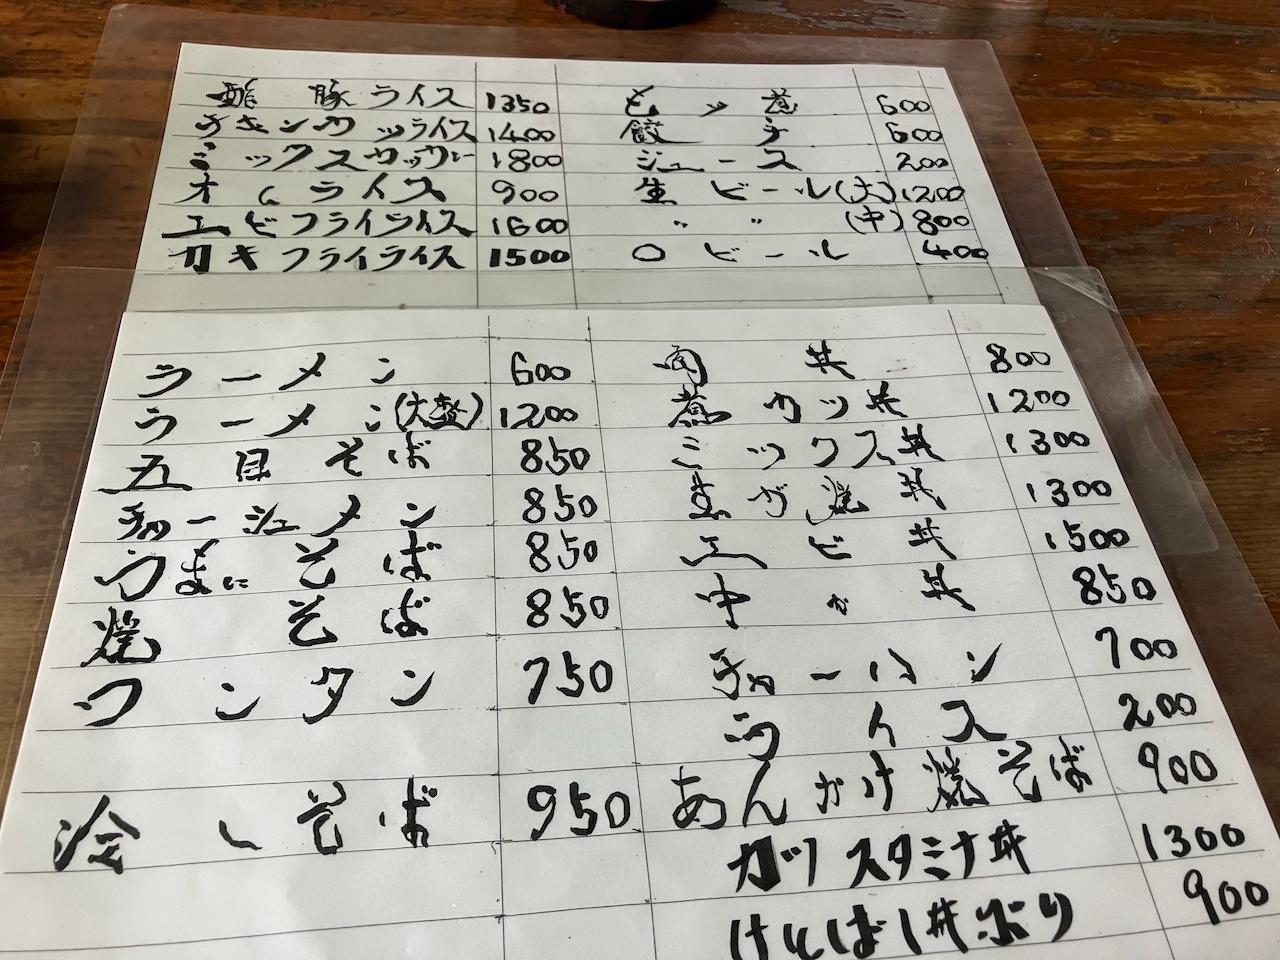 酢豚ライス 1350
チキンカツライス 1400
ミックスカツカレー 1800
オムライス 900
エビフライライス 1600
カキフライライス 1500
もツ煮 600
餃子 600
ジュース 200
生ビール(大) 1200
〃 〃 (中) 800
〇ビール 400
ラーメン 600
ラーメン(大盛) 1200
五目そば 850
チャーシュメン 850
うまにそば 850
焼そば 850
ワンタン 750
冷しそば 950
肉丼 800
煮カツ丼 1200
ミックス丼 1300
生が焼丼 1300
エビ丼 1500
中カ丼 850
チャーハン 700
ライス 200
あんかけ焼そば 900
カツスタミナ丼 1300
けんばし丼ぶり 900